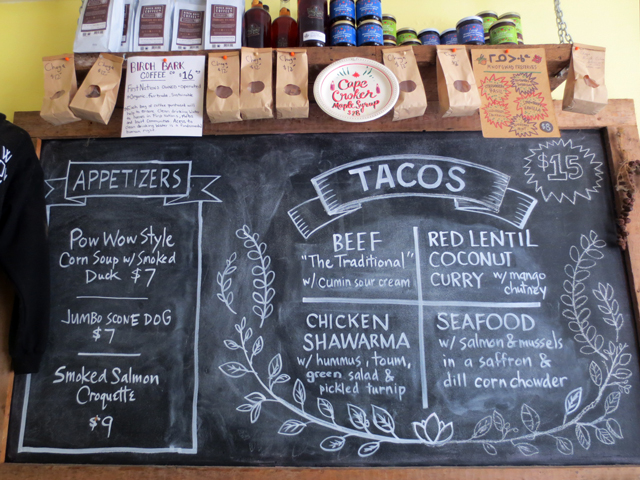 BIRCH BARK
COFFEE OF $16
Cape
Croker
Maple Syrup
APPETIZERS
Pow Wow Style
Corn Soup w/ Smoked
Duck $7
JUMBO SCONE DOG
$7
Smoked Salmon
Croquette
$9
TACOS
$15
BEEF
"The Traditional"
w/ Cumin sour cream
RED LENTIL
COCONUT
CURRY w/ mango
chutney
CHICKEN
SHAWARMA
w/ hummus, toum,
green salad &
pickled turnip
SEAFOOD
w/ salmon & mussels
in a saffron &
dill corn chowder